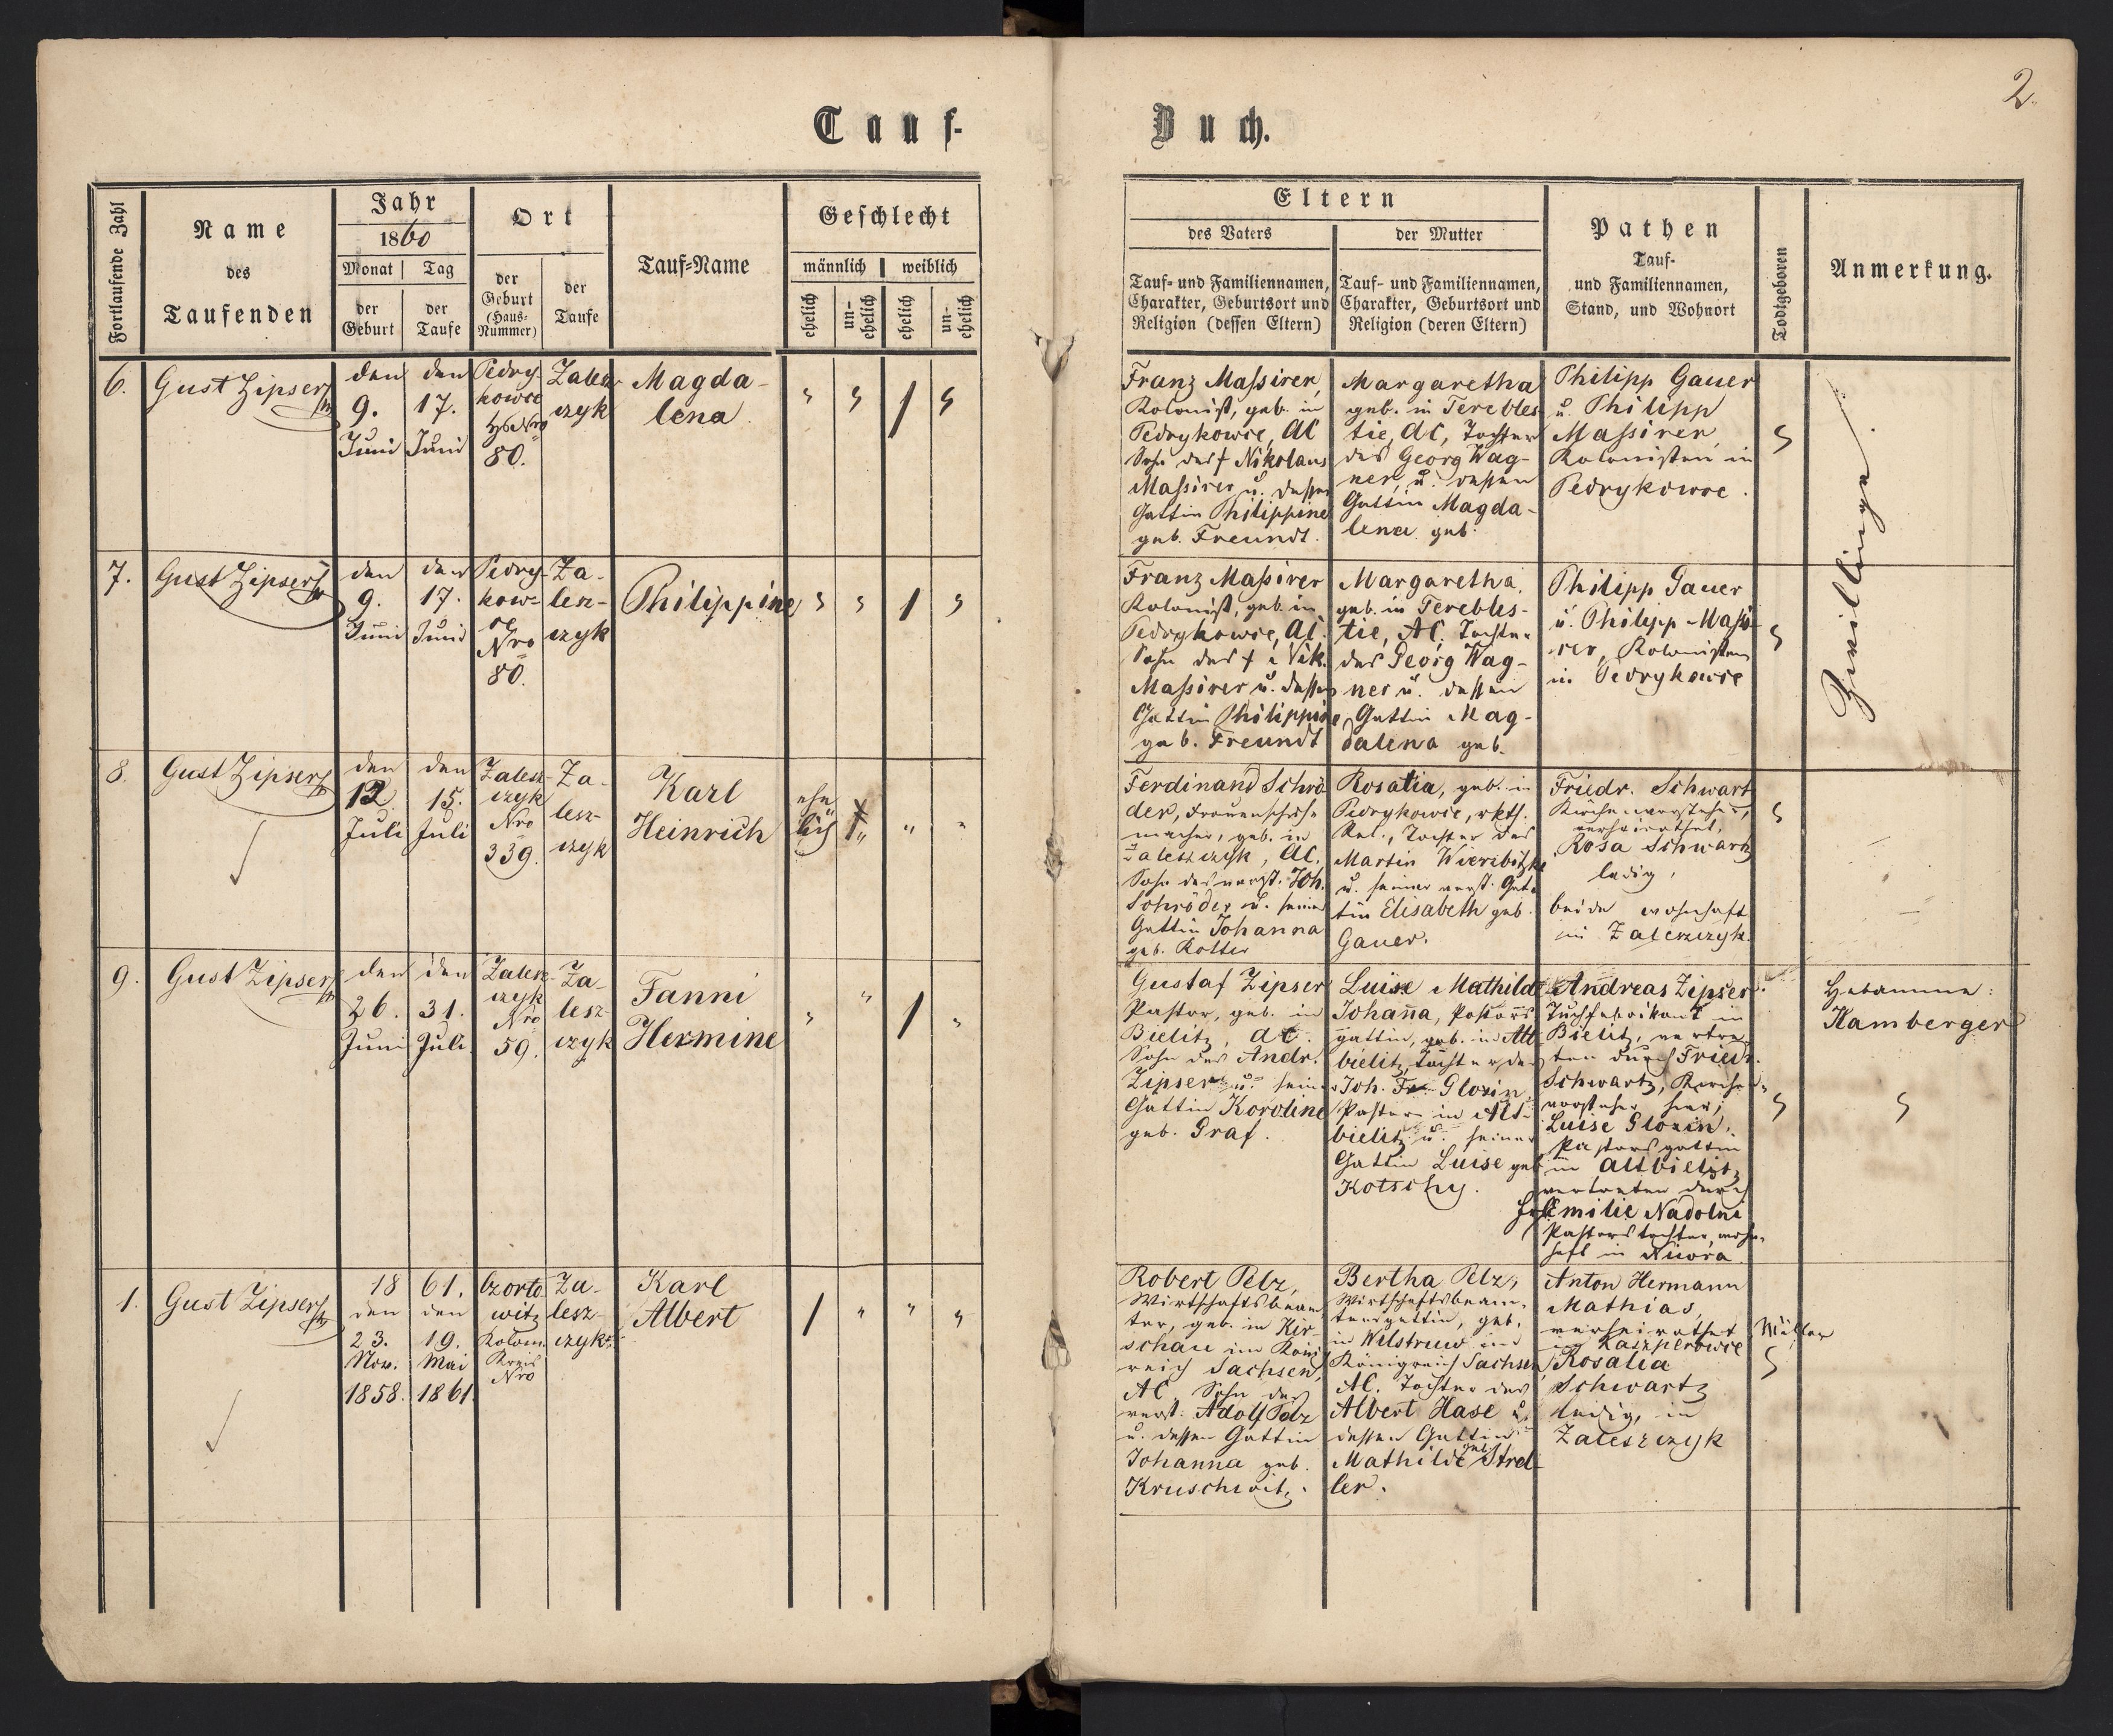 Tauf-
Buch.
2.
Fortlaufende Zahl
Name
des
Taufenden
Jahr
1860
Monat
Tag
der
Geburt
der
Taufe
Ort
der
Geburt
(Haus-
Nummer)
der
Taufe
Tauf-Name
Geschlecht
männlich
weiblich
ehelich
un-
ehelich
ehelich
un-
ehelich
Eltern
des Vaters
der Mutter
Tauf- und Familiennamen,
Charakter, Geburtsort und
Religion (dessen Eltern)
Tauf- und Familiennamen,
Charakter, Geburtsort und
Religion (deren Eltern)
Pathen
Tauf-
und Familiennamen,
Stand, und Wohnort
Todtgeboren
Anmerkung.
6.
Gust Zipser
den
9.
Juni
den
17.
Juni
Pedry-
kowce
Nro
80.
Zalesz-
czyk
Magda-
lena
1
Franz Maßirer,
Kolonist, geb. in
Pedrykowce, AC
Sohn des † Nikolaus
Maßirer u. dessen
Gattin Philippine
geb. Freundt.
Margaretha
geb. in Terebles-
tie, AC, Tochter
des Georg Wag-
ner, u. dessen
Gattin Magda-
lena geb.
Philipp Gauer
u. Philipp
Maßirer,
Kolonisten in
Pedrykowce.
Zwillinge.
7.
Gust Zipser
den
9.
Juni
den
17.
Juni
Pedry-
kow-
ce
Nro
80.
Za-
lesz-
czyk
Philippine
1
Franz Maßirer
Kolonist, geb. in
Pedrykowce, AC.
Sohn des † Nik.
Maßirer u. dessen
Gattin Philippine
geb. Freundt
Margaretha,
geb. in Terebles-
tie, AC. Tochter
des Georg Wag-
ner u. dessen
Gattin Mag-
dalena geb.
Philipp Gauer
u. Philipp Maßi-
rer, Kolonisten
in Pedrykowce
8.
Gust Zipser
den
12.
Juli
den
15.
Juli
Zalesz-
czyk
Nro
339.
Za-
lesz-
czyk
Karl
Heinrich
ehe
lich
Ferdinand Schrö-
der, Frauenschuh-
macher, geb. in
Zaleszczyk, AC.
Sohn des verst. Joh.
Schröder u. seiner
Gattin Johanna
geb. Rotter
Rosalia, geb. in
Pedrykowce, rkth.
Rel., Tochter des
Martin Wierebitzke
u. seiner verst. Gat-
tin Elisabeth geb.
Gauer.
Friedr. Schwartz
Kirchenvorsteher,
verheirathet,
Rosa Schwartz
ledig,
beide wohnhaft
in Zaleszczyk.
9.
Gust Zipser
den
26.
Juni
den
31.
Juli
Zalesz-
czyk
Nro
59.
Za-
lesz-
czyk
Fanni
Hermine
1
Gustaf Zipser
Pastor, geb. in
Bielitz, AC.
Sohn des Andr.
Zipser u. seiner
Gattin Karoline
geb. Graf.
Luise Mathilde
Johanna, Pastors-
gattin, geb. in Alt-
bielitz, Tochter des
Joh. Glozin,
Pastors in Alt-
bielitz u. seiner
Gattin Luise geb.
Kotschy.
Andreas Zipser
Tuchfabrikant in
Bielitz, vertre-
ten durch Friedr.
Schwartz, Kirchen-
vorsteher hier;
Luise Glozin,
Pastorsgattin
in Altbielitz
vertreten durch
Emilie Nadolni
Pastorstochter, wohn-
haft in
Hebamme:
Kamberger
1.
Gust Zipser
18
61.
den
23.
Nov.
1858.
den
19.
Mai
1861
Czorto-
witz
Kolom.
Kreis
Nro
Za-
lesz-
czyk
Karl
Albert
1
Robert Pelz,
Wirtschaftsbeam-
ter, geb. in Kir-
schau im König-
reich Sachsen,
AC. Sohn des
verst. Adolf Pelz
u. dessen Gattin
Johanna geb.
Kruschwitz.
Bertha Pelz,
Wirtschaftsbeam-
tensgattin, geb.
in Wilstruw im
Königreich Sachsen,
AC. Tochter des
Albert Hase u.
dessen Gattin
Mathilde geb. Strel-
ler.
Anton Hermann
Mathias, Müller
verheirathet
in Kaszperowce
Rosalia
Schwartz
ledig, in
Zaleszczyk